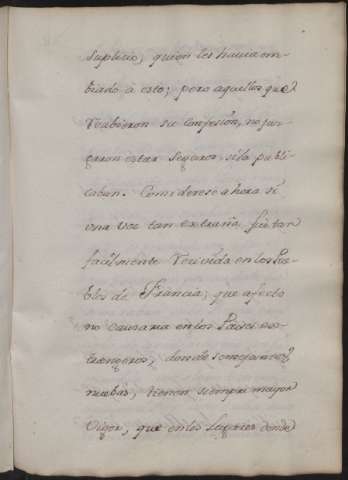 suplicio, quien les havia em-
biado à esto; pero aquellos que
recibieron su confesion, no juz-
garon estar seguros, si la publi-
caban. Considerese ahora si
una voz tan extraña, fue tan
facilmente recivida en los Pue-
blos de Francia, que afecto
no causaria en los Paises es-
trangeros, donde semejantes
nuebas, tienen siempre mayor
vigor, que en los Lugares donde